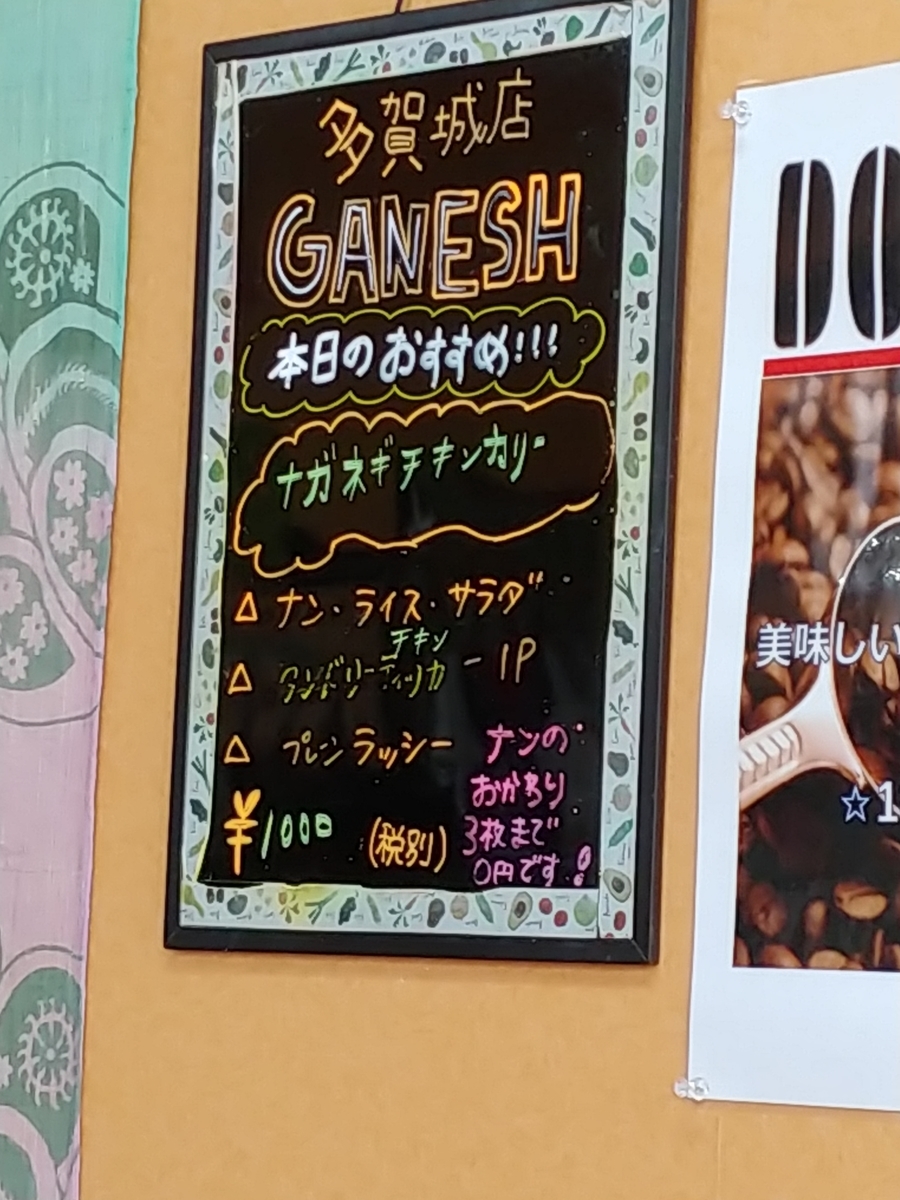 多賀城店
GANESH
本日のおすすめ!!!
ナガネギチキンカリー
△ ナン・ライス・サラダ
チキン
△ タンドリーティッカ - 1P
△ プレンラッシー
¥1000 (税別)
ナンの
おかわり
3枚まで
0円です!
DO
美味しい
☆1